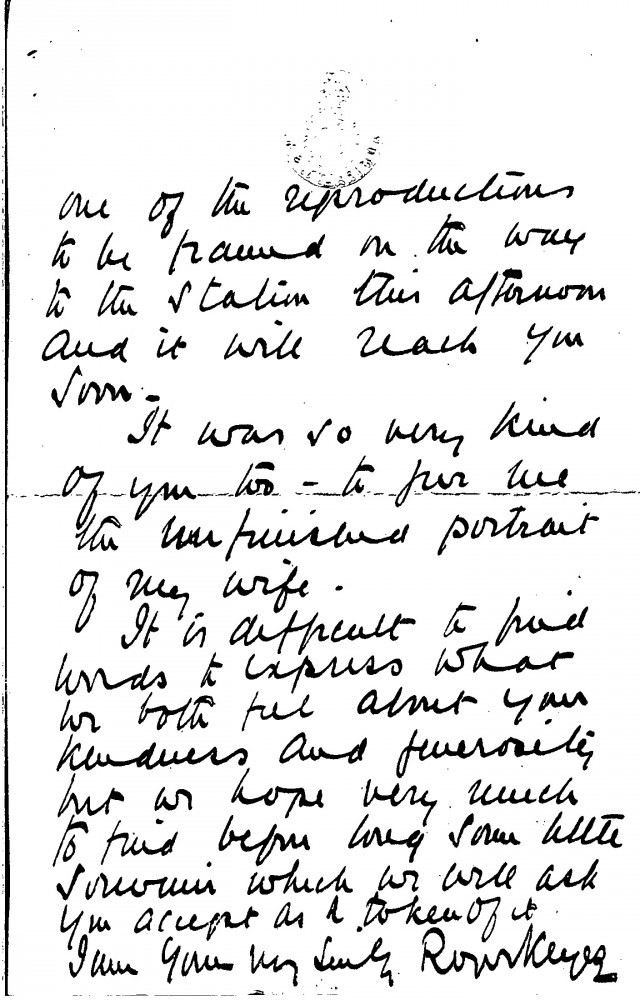 one of the reproductions
to be framed on the way
to the station this afternoon
and it will reach you
soon -
It was so very kind
of you too - to give me
the unfinished portrait
of my wife.
It is difficult to find
words to express what
we both feel about your
kindness and generosity
but we hope very much
to find before long some little
souvenir which we will ask
you accept as a token of it
I am Yours very sincly Roger Keyes